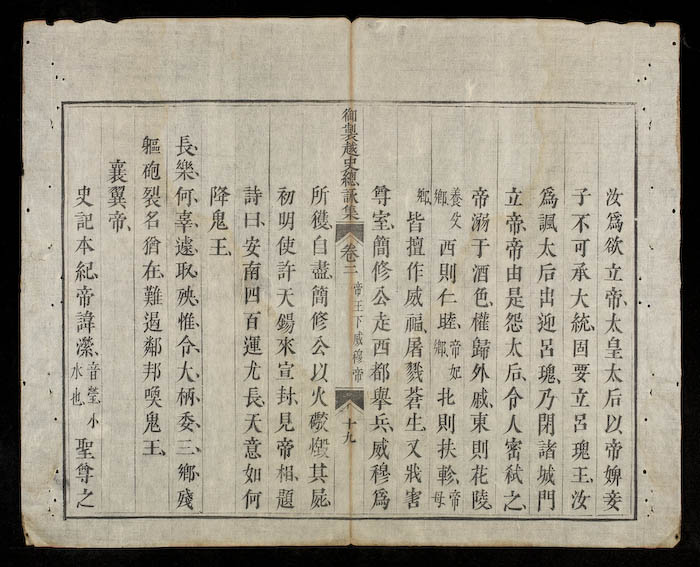 汝爲欲立帝、太皇太后以帝婢妾
子不可承大統固要立呂瑰王、汝
爲諷太后出迎呂瑰、乃閉諸城門
立帝、帝由是怨太后、令人密弑之、
帝溺于酒色、權歸外戚、東則花陵
養父鄉西則仁睦、帝妃鄉北則扶軫、帝母
鄉、皆擅作威福、屠戮蒼生、又戕害
尊室、簡修公走西都舉兵、威穆爲
御製越史總詠集 卷二 帝王下威穆帝 十九
所獲、自盡、簡修公以火礮燬其屍、
初明使許天錫來宣封、見帝相、題
詩曰、安南四百運尤長、天意如何
降鬼王、
長樂何辜遽取殃、惟令大柄委三鄉、殘
軀砲裂名猶在、難遏鄰邦喚鬼王、
襄翼帝、
史記本紀、帝諱瀠、音瑩、小水也、聖尊之